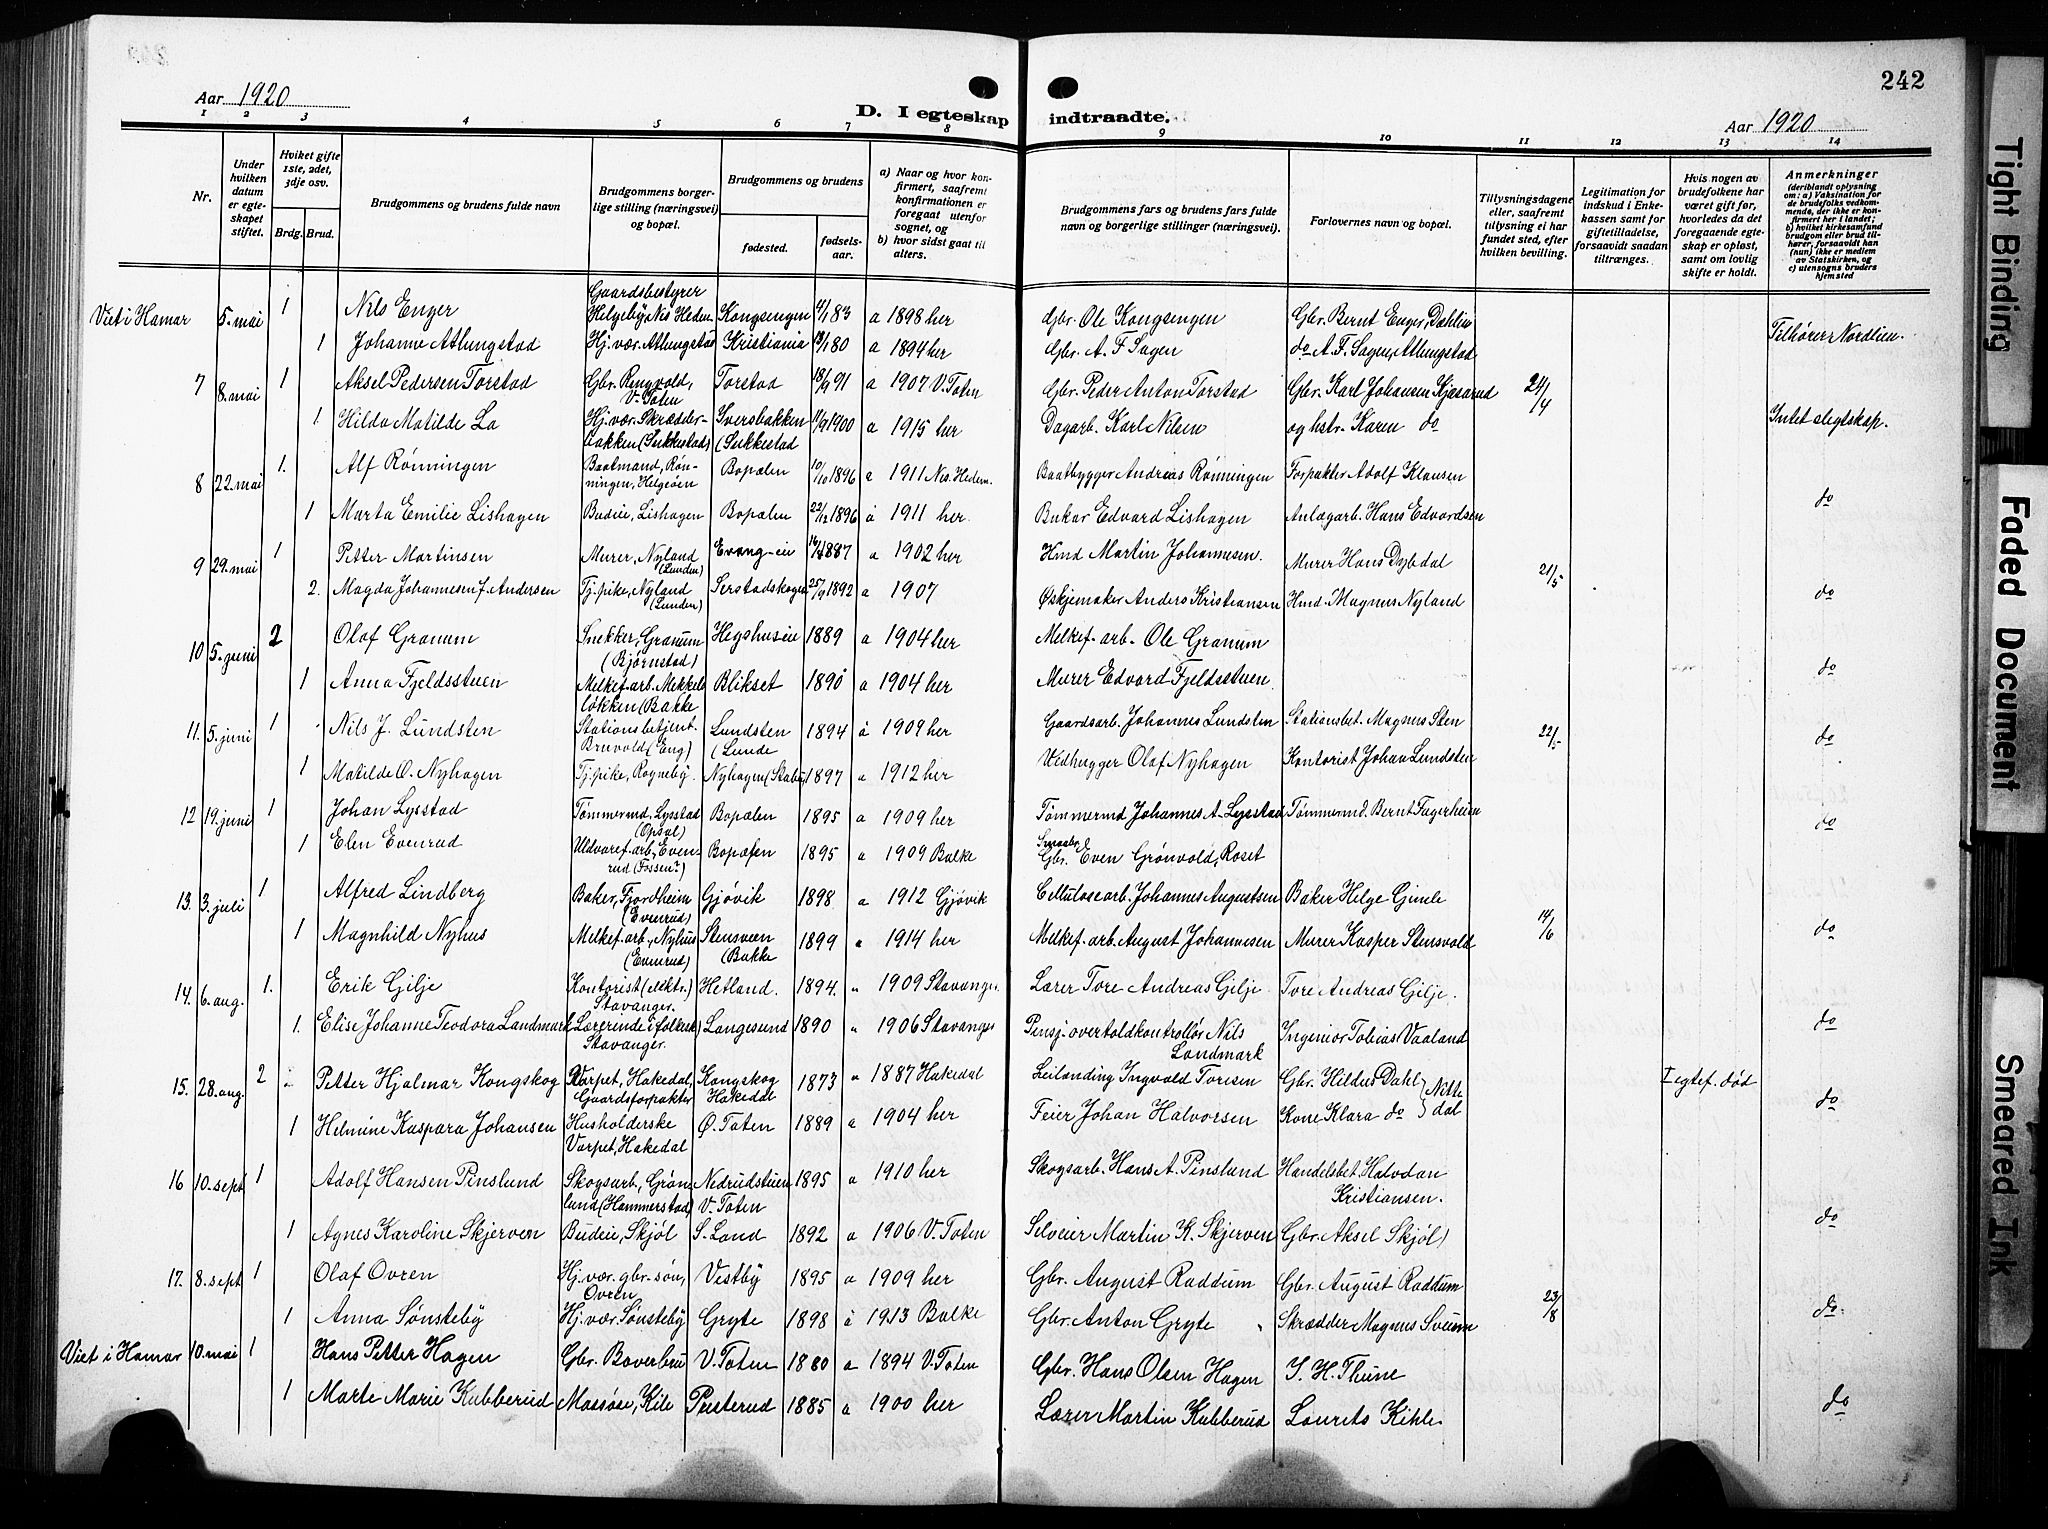 242
Aar 1920
D. I egteskap indtraadte.
Aar 1920
1 2 3 4 5 6 7 8 9 10 11 12 13 14
Nr.
Under hvilken datum er egteskapet stiftet.
Hviket gifte 1ste, 2det, 3dje osv.
Brdg. Brud.
Brudgommens og brudens fulde navn
Brudgommens borgerlige stilling (næringsvei) og bopæl.
Brudgommens og brudens
fødested. fødselsaar.
a) Naar og hvor konfirmert, saafremt konfirmationen er foregaat utenfor sognet, og b) hvor sidst gaat til alters.
Brudgommens fars og brudens fars fulde navn og borgerlige stillinger (næringsvei).
Forlovernes navn og bopæl.
Tillysningsdagene eller, saafremt tillysning ei har fundet sted, efter hvilken bevilling.
Legitimation for indskud i Enkekassen samt for giftetilladelse, forsaavidt saadan tiltrænges.
Hvis nogen av brudefolkene har været gift før, hvorledes da det foregaaende egteskap er opløst, samt om lovlig skifte er holdt.
Anmerkninger (deriblandt oplysning om: a) Vaksination for de brudefolks vedkommende, der ikke er konfirmert her i landet; b) hvilket kirkesamfund brudgom eller brud tilhører, forsaavidt han (hun) ikke er medlem av Statskirken, og c) utensogns bruders hjemsted
Viet i Hamar 5. mai 1 Nils Enger Gaardsbestyrer Helgeby Nes Hedm. Kongsengen 4/1 83 a 1898 her Gbr. Ole Kongsengen Gbr. Bernt Enger, Dæhlin Tilhører Nordlien.
1 Johanne Athungstad Hj. vær. Athungstad Kristiania 13/1 80 a 1894 her Gbr. A. F. Sagen do A. F. Sagen, Athungstad
7 8. mai 1 Aksel Pedersen Torstad Gbr. Ringvold, V. Toten Torstad 18/9 91 a 1907 V. Toten Gbr. Peder Anton Torstad Gbr. Karl Johansen Kjøsarud 24/4
1 Hilda Matilde Lo Hj. vær. Skrædderbakken (Sukkestad) Sversbakken (Sukkestad 11/9 1900 a 1915 her Dagarb. Karl Nilsen og hstr. Karen do Intet slegtskap.
8 22. mai 1. Alf Rønningen Baatmand, Rønningen, Helgeøen Bopælen 10/10 1896 a 1911 Nes. Hedem. Baatbygger Andreas Rønningen Forpakter Adolf Klausen
1 Marta Emilie Lishagen Budeie, Lishagen Bopælen 22/12 1896 a 1911 her. Bruker Edvard Lishagen Anlægarb. Hans Edvardsen do
9 29. mai 1 Petter Martinsen Murer, Nyland (Lunden) 1887 a 1902 her Hmd Martin Johannesen. Murer Hans Dybdal 21/5
2. Magda Johannesen f. Andersen Tj. pike, Nyland (Lunden) Serstadskogen 25/9 1892 a 1907 Øskjemaker Anders Kristiansen Hmd. Magnus Nyland do
10 5. juni 2 Olaf Granum Snekker, Granum (Bjørnstad) Hegshusene 1889 a 1904 her Melkef-arb. Ole Granum
1 Anna Fjeldsstuen Melkef-arb. Mekkeløkken (Bakke Blikset 1890 a 1904 her Murer Edvard Fjeldsstuen. do
11. 5. juni 1 Nils J. Lundsten Stationsbetjent. Bruvold (Eng) Lundsten (Lunde 1894 a 1909 her Gaardsarb. Johannes Lundsten Stationsbet. Magnus Sten 22/5
1 Matilde O. Nyhagen Tj. pike, Rogneby. Nyhagen (Staby) 1897 a 1912 her Vedhugger Olaf Nyhagen Kontorist Johan Lundsten do
12 19. juni 1 Johan Lysstad Tømmermd, Lysstad (Opsal) Bopælen 1895 a 1909 her Tømmermd Johannes A. Lysstad Tømmermd. Bernt Fagerheim
1 Elen Evenrud Uldvaref-arb, Evenrud (Fossen?) Bopælen 1895 a 1909 Balke Gbr. Even Grønvold, Roset do
13. 3. juli 1 Alfred Lindberg Baker, Fjordheim (Evenrud) Gjøvik 1898 a 1912 Gjøvik Cellulosearb. Johannes Augustsen Baker Helge Gimle 14/6
1 Magnhild Nyhus Melkef-arb., Nyhus (Evenrud) Stensveen (Bakke 1899 " 1914 her Melkef. arb. August Johannesen Murer Kasper Stensvold do
14. 6. aug. 1. Erik Gilje Kontorist (elektr.) Stavanger. Hetland. 1894. " 1909 Stavanger. Lærer Tore Andreas Gilje. Tore Andreas Gilje.
1. Elise Johanne Teodora Landmark Lærerinde i folkesk.) Stavanger. Langesund 1890 " 1906 Stavanger Pensj. overtoldkontrollør Nils Landmark Ingeniør Tobias Vaaland do
15. 28. aug. 2 Petter Hjalmar Kongskog Varpet, Hakedal, Gaardsforpakter Kongskog Hakedal 1873 " 1887 Hakedal Leilending Ingvald Toresen Gbr. Hildus Dahl } Nittedal I egtef. død
1 Helmine Kaspara Johansen Husholderske Varpet, Hakedal Ø. Toten 1889 a 1904 her Feier Johan Halvorsen Kone Klara do do
16 10. sept 1 Adolf Hansen Pinslund Skogsarb, Grønlund (Hammerstad) Nedrudstuen V. Toten 1895 a 1910 her Skogsarb. Hans A. Pinslund Handelsbet. Halvdan Kristiansen.
1 Agnes Karoline Skjerven Budeie, Skjøl S. Land 1892 a 1906 V. Toten Selveier Martin K. Skjerven Gbr. Aksel Skjøl do
17. 8. sept 1 Olaf Ovren Hj. vær. gbr. søn, Ovren Vestby 1895 a 1909 her Gbr. August Raddum Gbr. August Raddum 23/8
1 Anna Sønsteby Hj. vær. Sønsteby Gryte 1898 a 1913 Balke Gbr. Anton Gryte Skrædder Magnus Sveum do
Viet i Hamar 10. mai 1 Hans Petter Hagen Gbr. Boverbru V. Toten 1880 a 1894 V. Toten Gbr. Hans Olsen Hagen I. H. Thune
1 Marte Marie Kubberud Massøse, Kile Pusterud 1885 a 1900 her Lærer Martin Kubberud Laurits Kihle do
Tight Binding
Faded Document
Smeared Ink